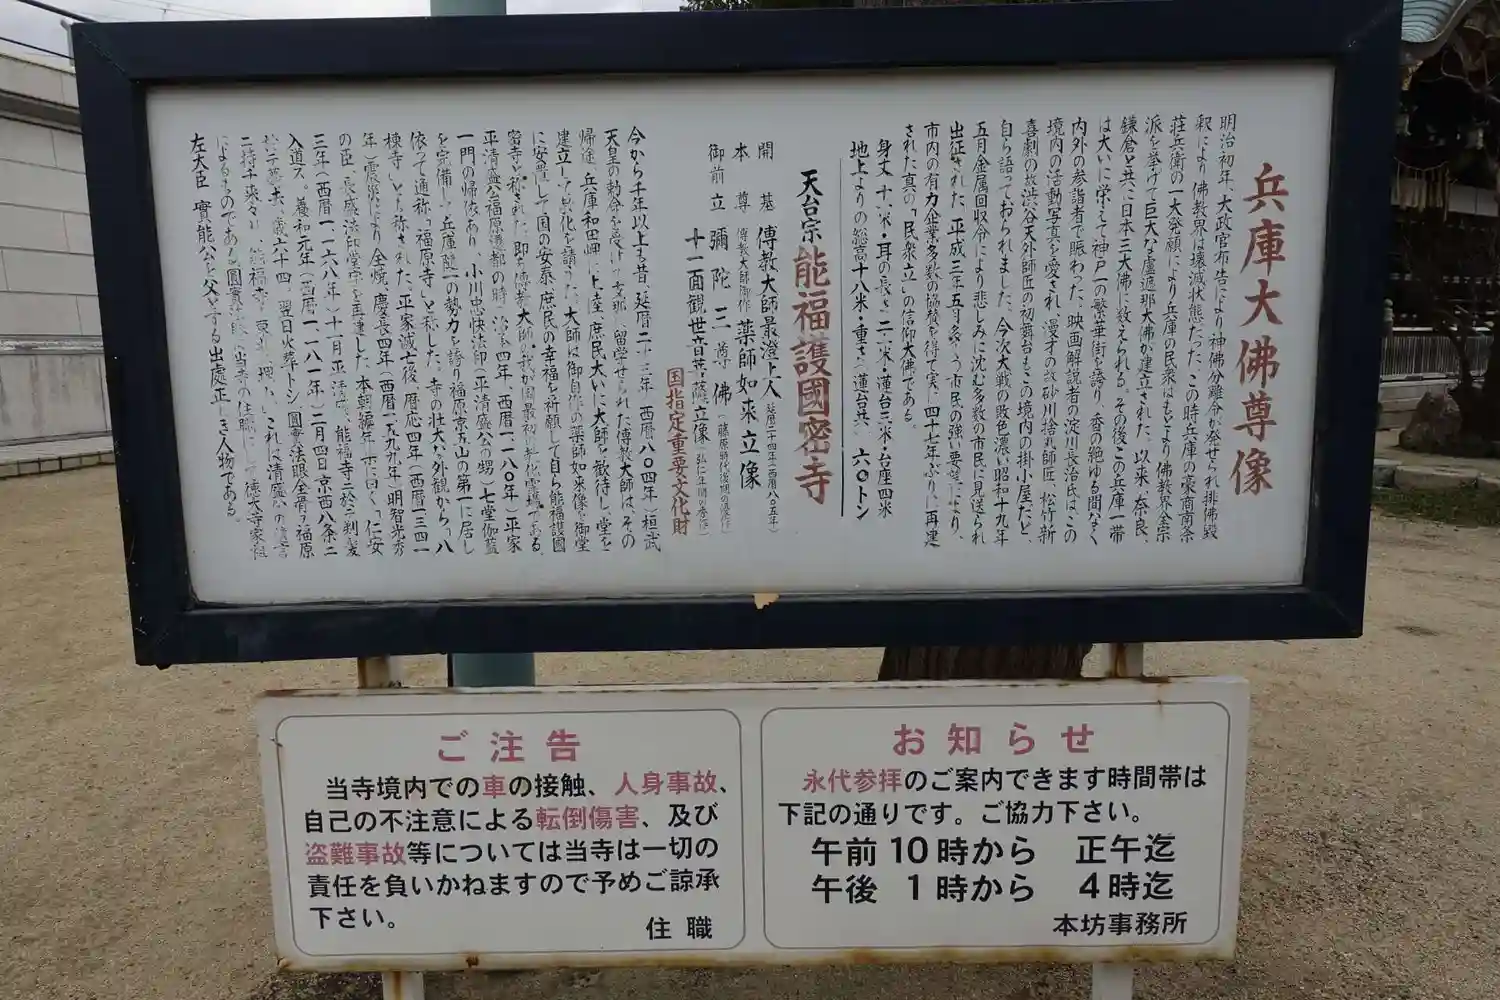 兵庫大佛尊像
明治初年、大政官布告により神佛分離令が発せられ排佛毀
釈により佛教界は壊滅状態だった、この時兵庫の豪商南条
荘兵衛の一大発願により兵庫の民衆はもとより佛教界全宗
派を挙げて巨大な盧遮那大佛が建立された、以来奈良
鎌倉と共に日本三大佛に数えられる。その後この兵庫一帯
は大いに栄えて神戸一の繁華街を誇り、香の絶ゆる間なく
内外の参詣者で賑わった、映画解説者の淀川長治氏はこの
境内の活動写真を愛され、漫才の故砂川捨丸師匠、松竹新
喜劇の故渋谷天外師匠の初舞台もこの境内の掛小屋だと、
自ら語っておられました、今次大戦の敗色濃い昭和十九年
五月金属回収令により悲しみに沈む多数の市民に見送られ
出征された、平成三年五月多くの市民の強い要望により、
市内の有力企業多数の協賛を得て実に四十七年ぶりに再建
された真の「民衆立」の信仰大佛である。
身丈十一米・耳の長さ二・一米・蓮台三米・台座四米
地上よりの総高十八米・重さ(蓮台共)六〇トン
天台宗 能福護國密寺
開基 傳教大師最澄上人(延暦二十四年・西暦八〇五年)
本尊 傳教大師御作 薬師如来立像
御前立 彌陀三尊佛
十一面観世音菩薩立像
国指定重要文化財
今から千年以上も昔、延暦二十三年(西暦八〇四年)桓武
天皇の勅命を受け支那へ留学せられた傳教大師は、その
帰途、兵庫和田岬に上陸、庶民大いに大師を歓待し堂を
建立して教化を請うた、大師は御自作の薬師如来像を御堂
に安置して国の安泰、庶民の幸福を祈願して自ら能福護國
密寺と称された、即ち傳教大師の我が国最初の教化霊場である、
平清盛公福原遷都の時(治承四年、西暦一一八〇年)平家
一門の帰依あり、小川忠快法印(平清盛公の甥)七堂伽藍
を完備して兵庫随一の勢力を誇り福原京五山の第一に居し
依って通称「福原寺」と称した、寺の壮大な外観から「八
棟寺」とも称された、平家滅亡後、暦応四年(西暦一三四一
年)震災により全焼、慶長四年(西暦一五九九年)明智光秀
の臣、長盛法印堂宇を再建した、本朝編年一九に曰く「仁安
三年(西暦一一六八年)十一月平清盛、能福寺に於て剃髪
入道ス。養和元年(西暦一一八一年)二月四日京西八条ニ
於テ薨ズ、歳六十四、翌日火葬トシ圓實法眼全骨ヲ福原
左大臣 實能公を父とする出處正しき人物である。
ご注告
当寺境内での車の接触、人身事故、
自己の不注意による転倒傷害、及び
盗難事故等については当寺は一切の
責任を負いかねますので予めご諒承
下さい。
住職
お知らせ
永代参拝のご案内できます時間帯は
下記の通りです。ご協力下さい。
午前10時から 正午迄
午後 1時から 4時迄
本坊事務所